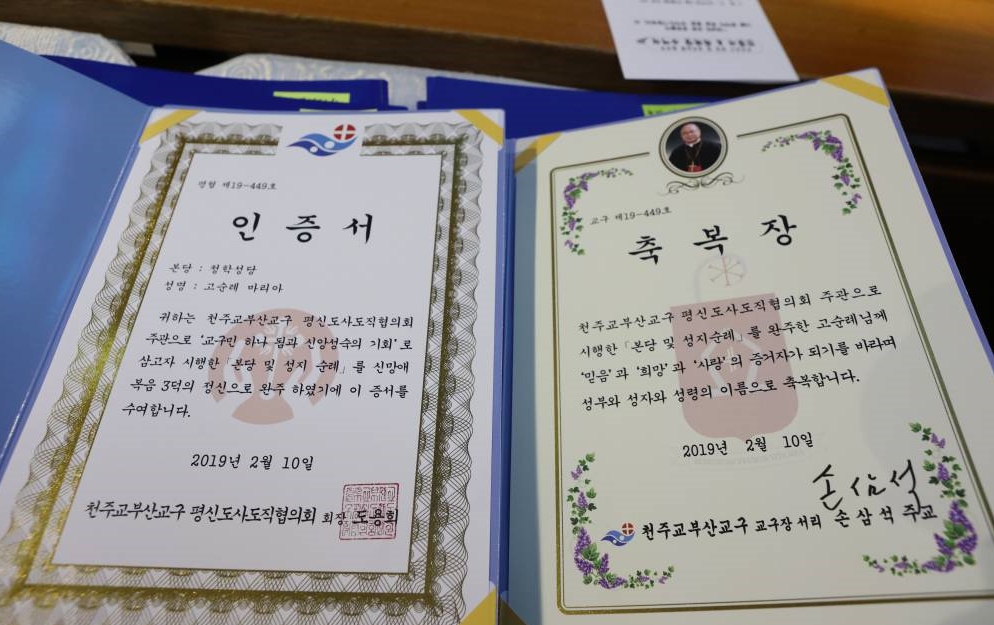 제19-449호
인 증 서
본당 : 청학성당
성명 : 고순례 마리아
귀하는 천주교부산교구 평신도사도직협의회
주관으로 '교구민 하나 됨과 신앙성숙의 기회' 로
삼고자 시행한 「본당 및 성지 순례」를 신망애
복음 3덕의 정신으로 완주 하였기에 이 증서를
수여합니다.
2019년 2월 10일
천주교부산교구 평신도사도직협의회 회장 도용희
교구 제19-449호
축 복 장
천주교부산교구 평신도사도직협의회 주관으로
시행한 「본당 및 성지순례」를 완주한 고순례님께
'믿음'과 '희망'과 '사랑'의 증거자가 되기를 바라며
성부와 성자와 성령의 이름으로 축복합니다.
2019년 2월 10일
손삼석
천주교부산교구 교구장 서리 손 삼 석 주교